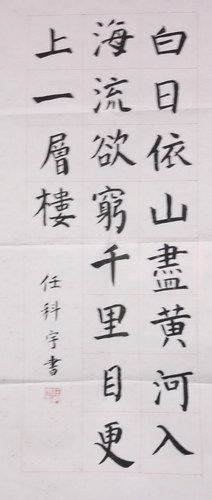 白日依山盡黄河入
海流欲窮千里目更
上一層樓
任科宇書